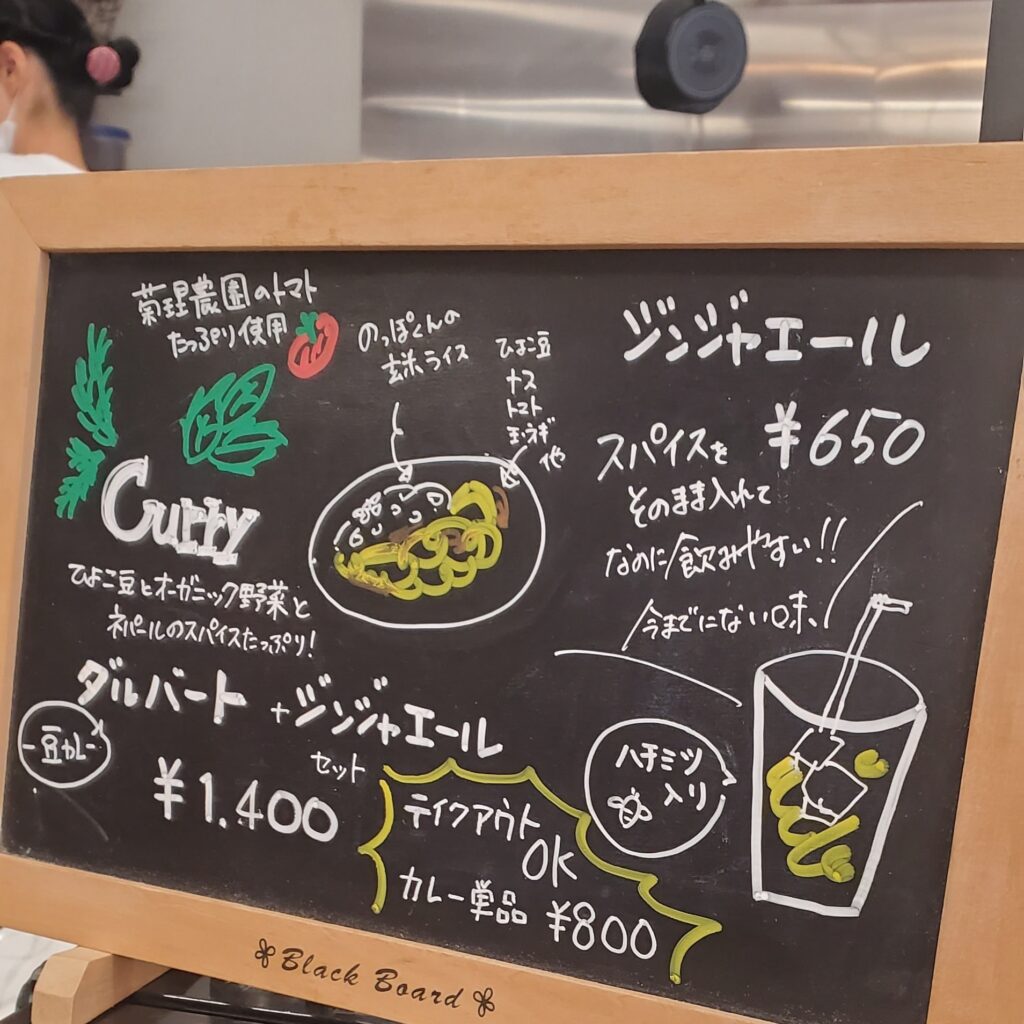 菊理農園のトマト
たっぷり使用
のっぽくんの
玄米ライス
ひよこ豆
ナス
トマト
玉ネギ
他
Curry
ひよこ豆とオーガニック野菜と
ネパールのスパイスたっぷり!
ダルバート +ジンジャエール
セット
豆カレー
¥1.400
テイクアウト
OK
カレー単品 ¥800
ジンジャエール
¥650
スパイスを
そのまま入れて
なのに飲みやすい!!
今までにない味
ハチミツ
入り
Black Board